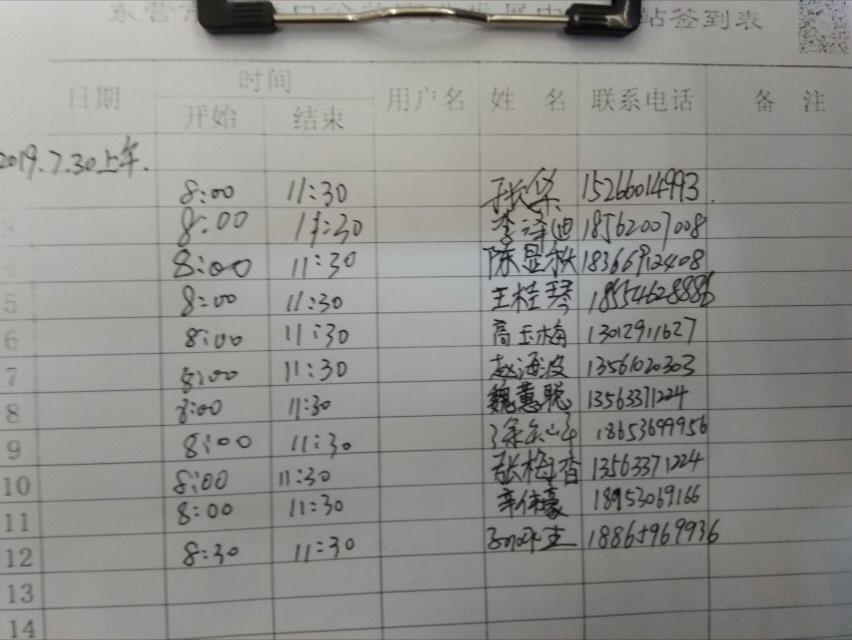 东营 站签到表
日期 时间 用户名 姓名 联系电话 备注
开始 结束
2019.7.30上午.
8:00 11:30 张华 15266014993.
8:00 11:30 李泽迪 18562007008
4 8:00 11:30 陈显秋 18366912408
5 8:00 11:30 王桂琴 18554628886
6 8:00 11:30 高玉梅 13012911627
7 8:00 11:30 赵海波 13561020303
8 8:00 11:30 魏蕙聪 13563371224
9 8:00 11:30 18653699956
10 8:00 11:30 张梅香 13563371224
11 8:00 11:30 辛伟豪 18953069166
12 8:30 11:30 18865969936
13
14